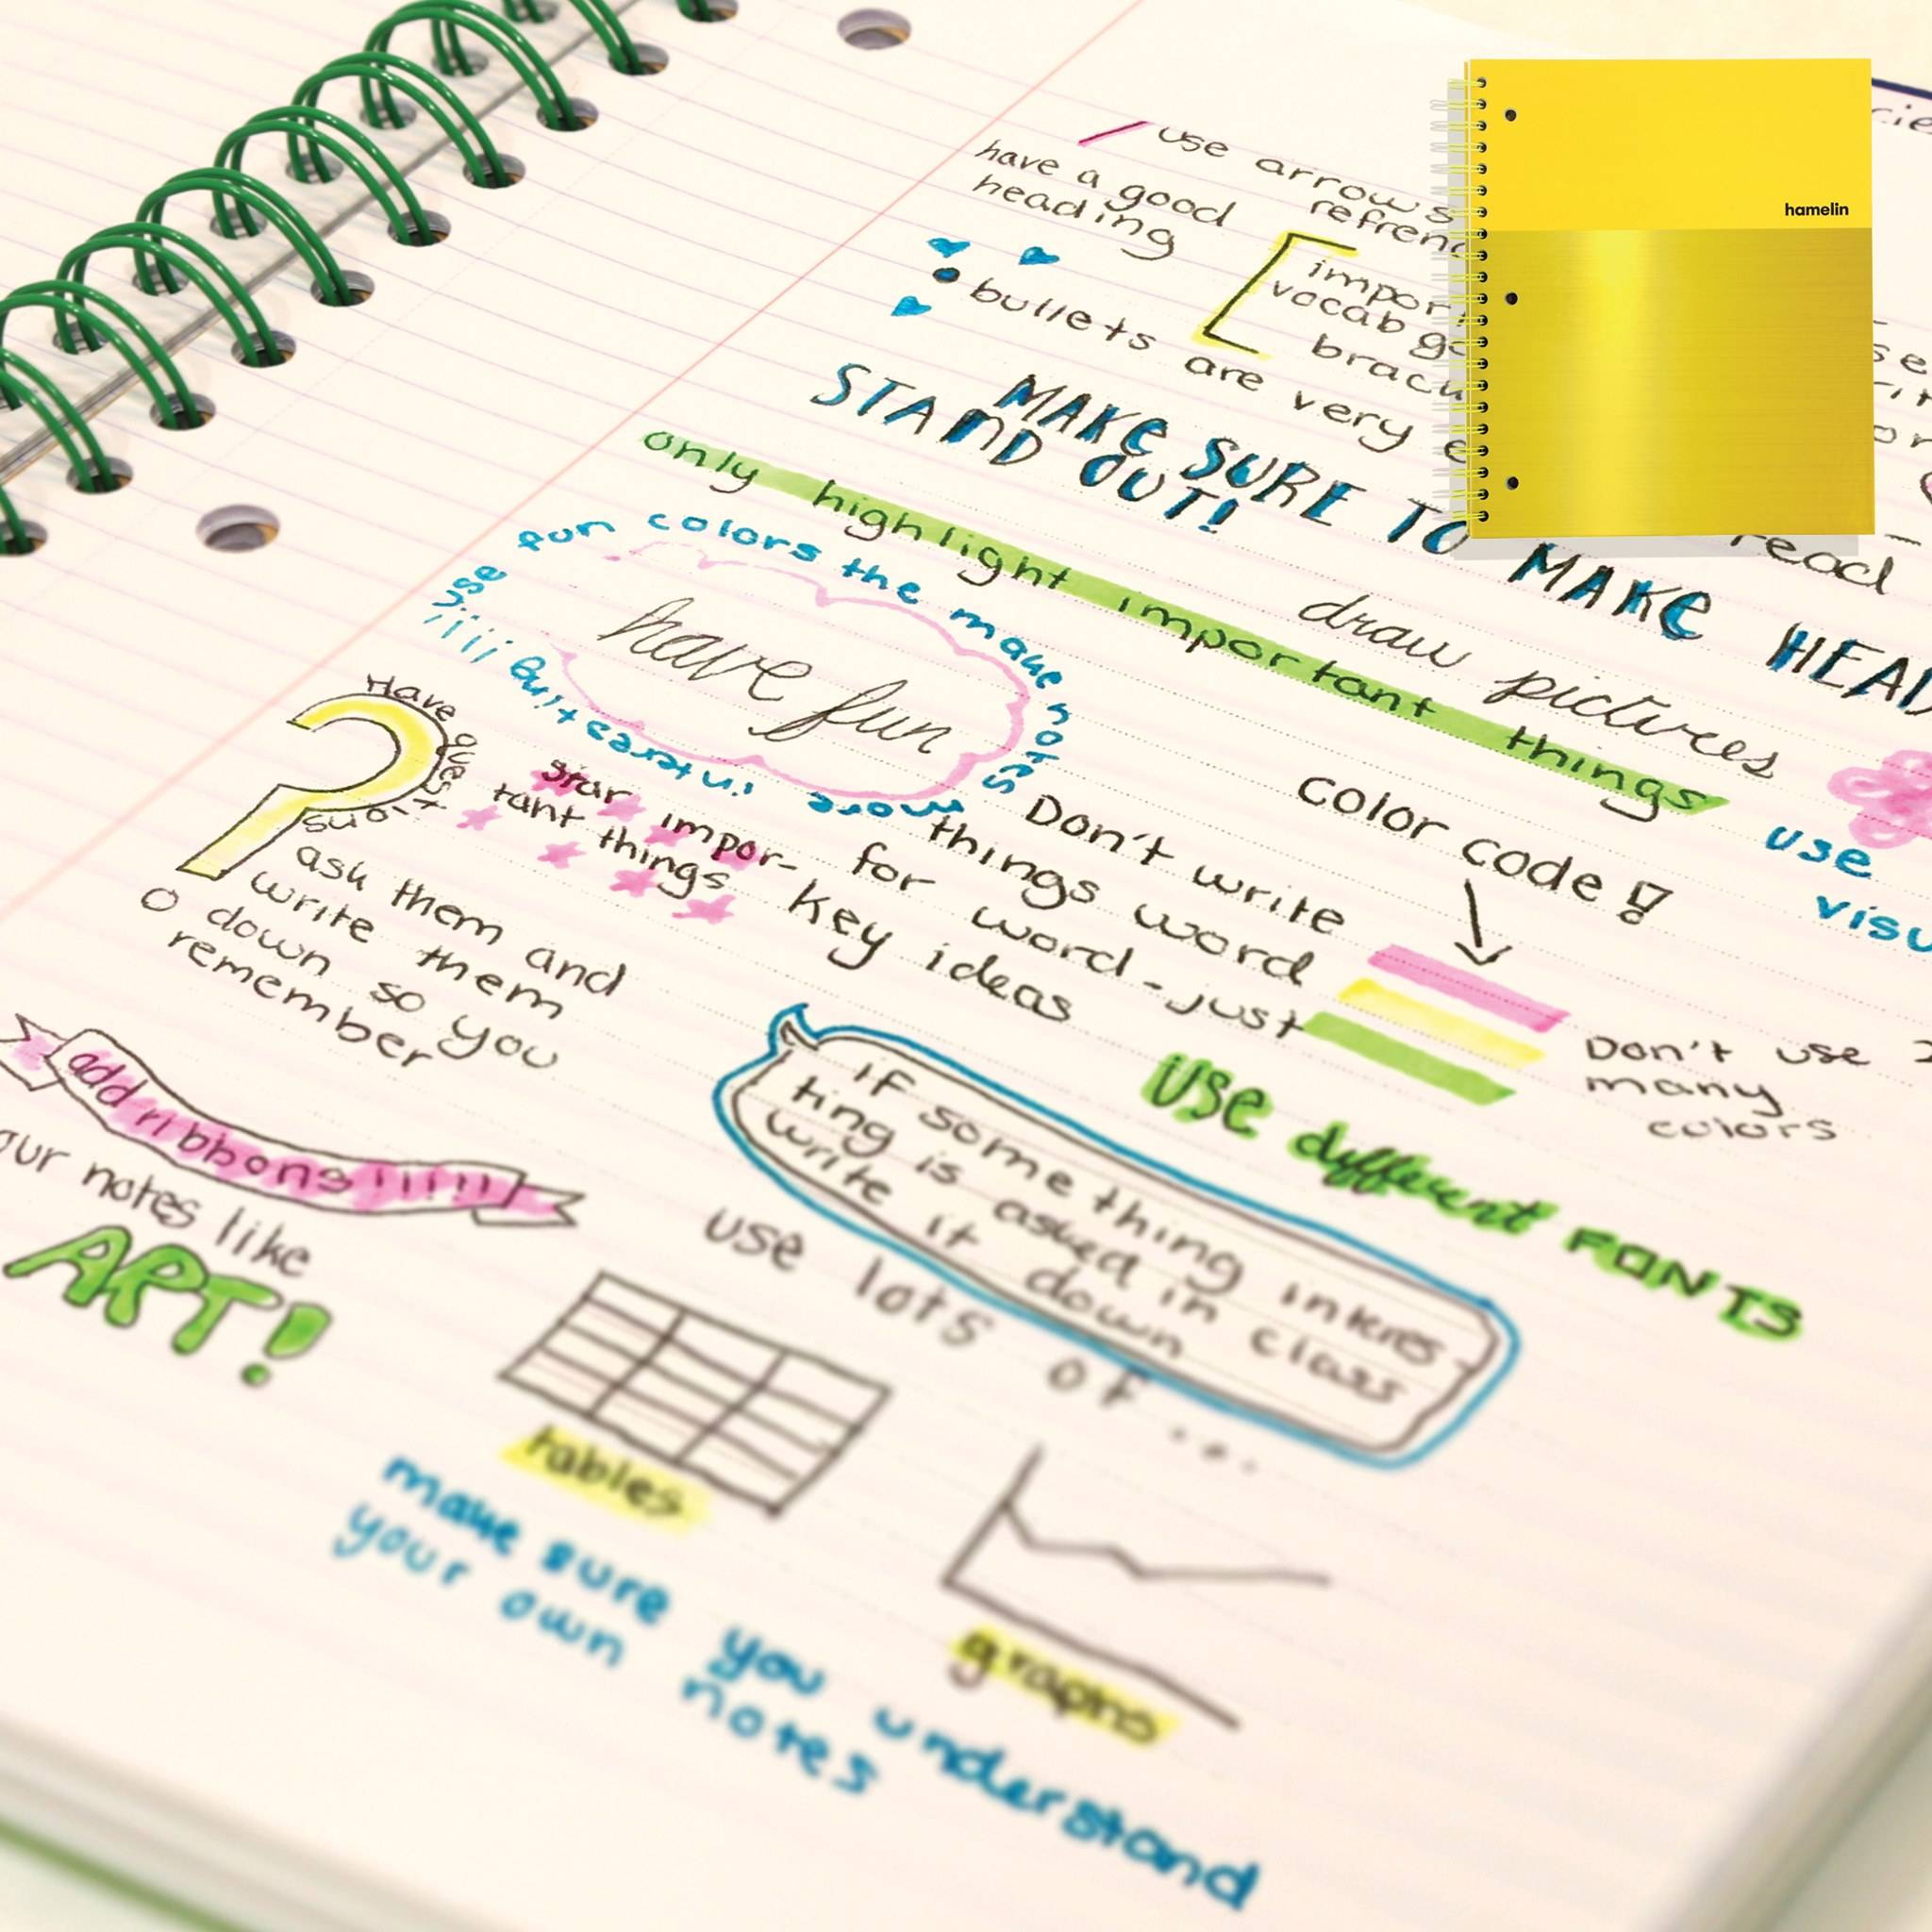 hamelin
use arrows
have a good
heading
bullets are very
MAKE SURE TO MAKE
STAND OUT!
only highlight important things
draw pictures
use fun colors the make notes more interesting!!!!!
have fun
Have quest-
ions
ask them and
write them
down so you
remember
star impor-
tant things
Don't write
things word
for word - just
key ideas
color code!
use
Don't use 2
many
colors
USE different FONTS
add ribbons!!!!!!
notes like
ART!
IF something interes-
ting is asked in class
write it down
use lots of ....
tables
graphs
make sure you understand
your own notes
read